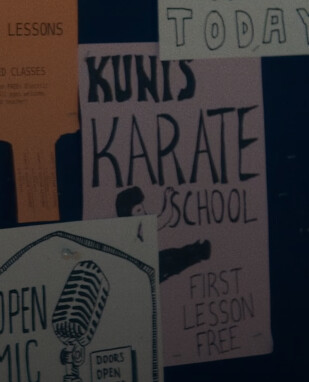 LESSONS
D CLASSES
TODAY
KUNIS
KARATE
SCHOOL
FIRST
LESSON
FREE
OPEN
MIC
DOORS
OPEN